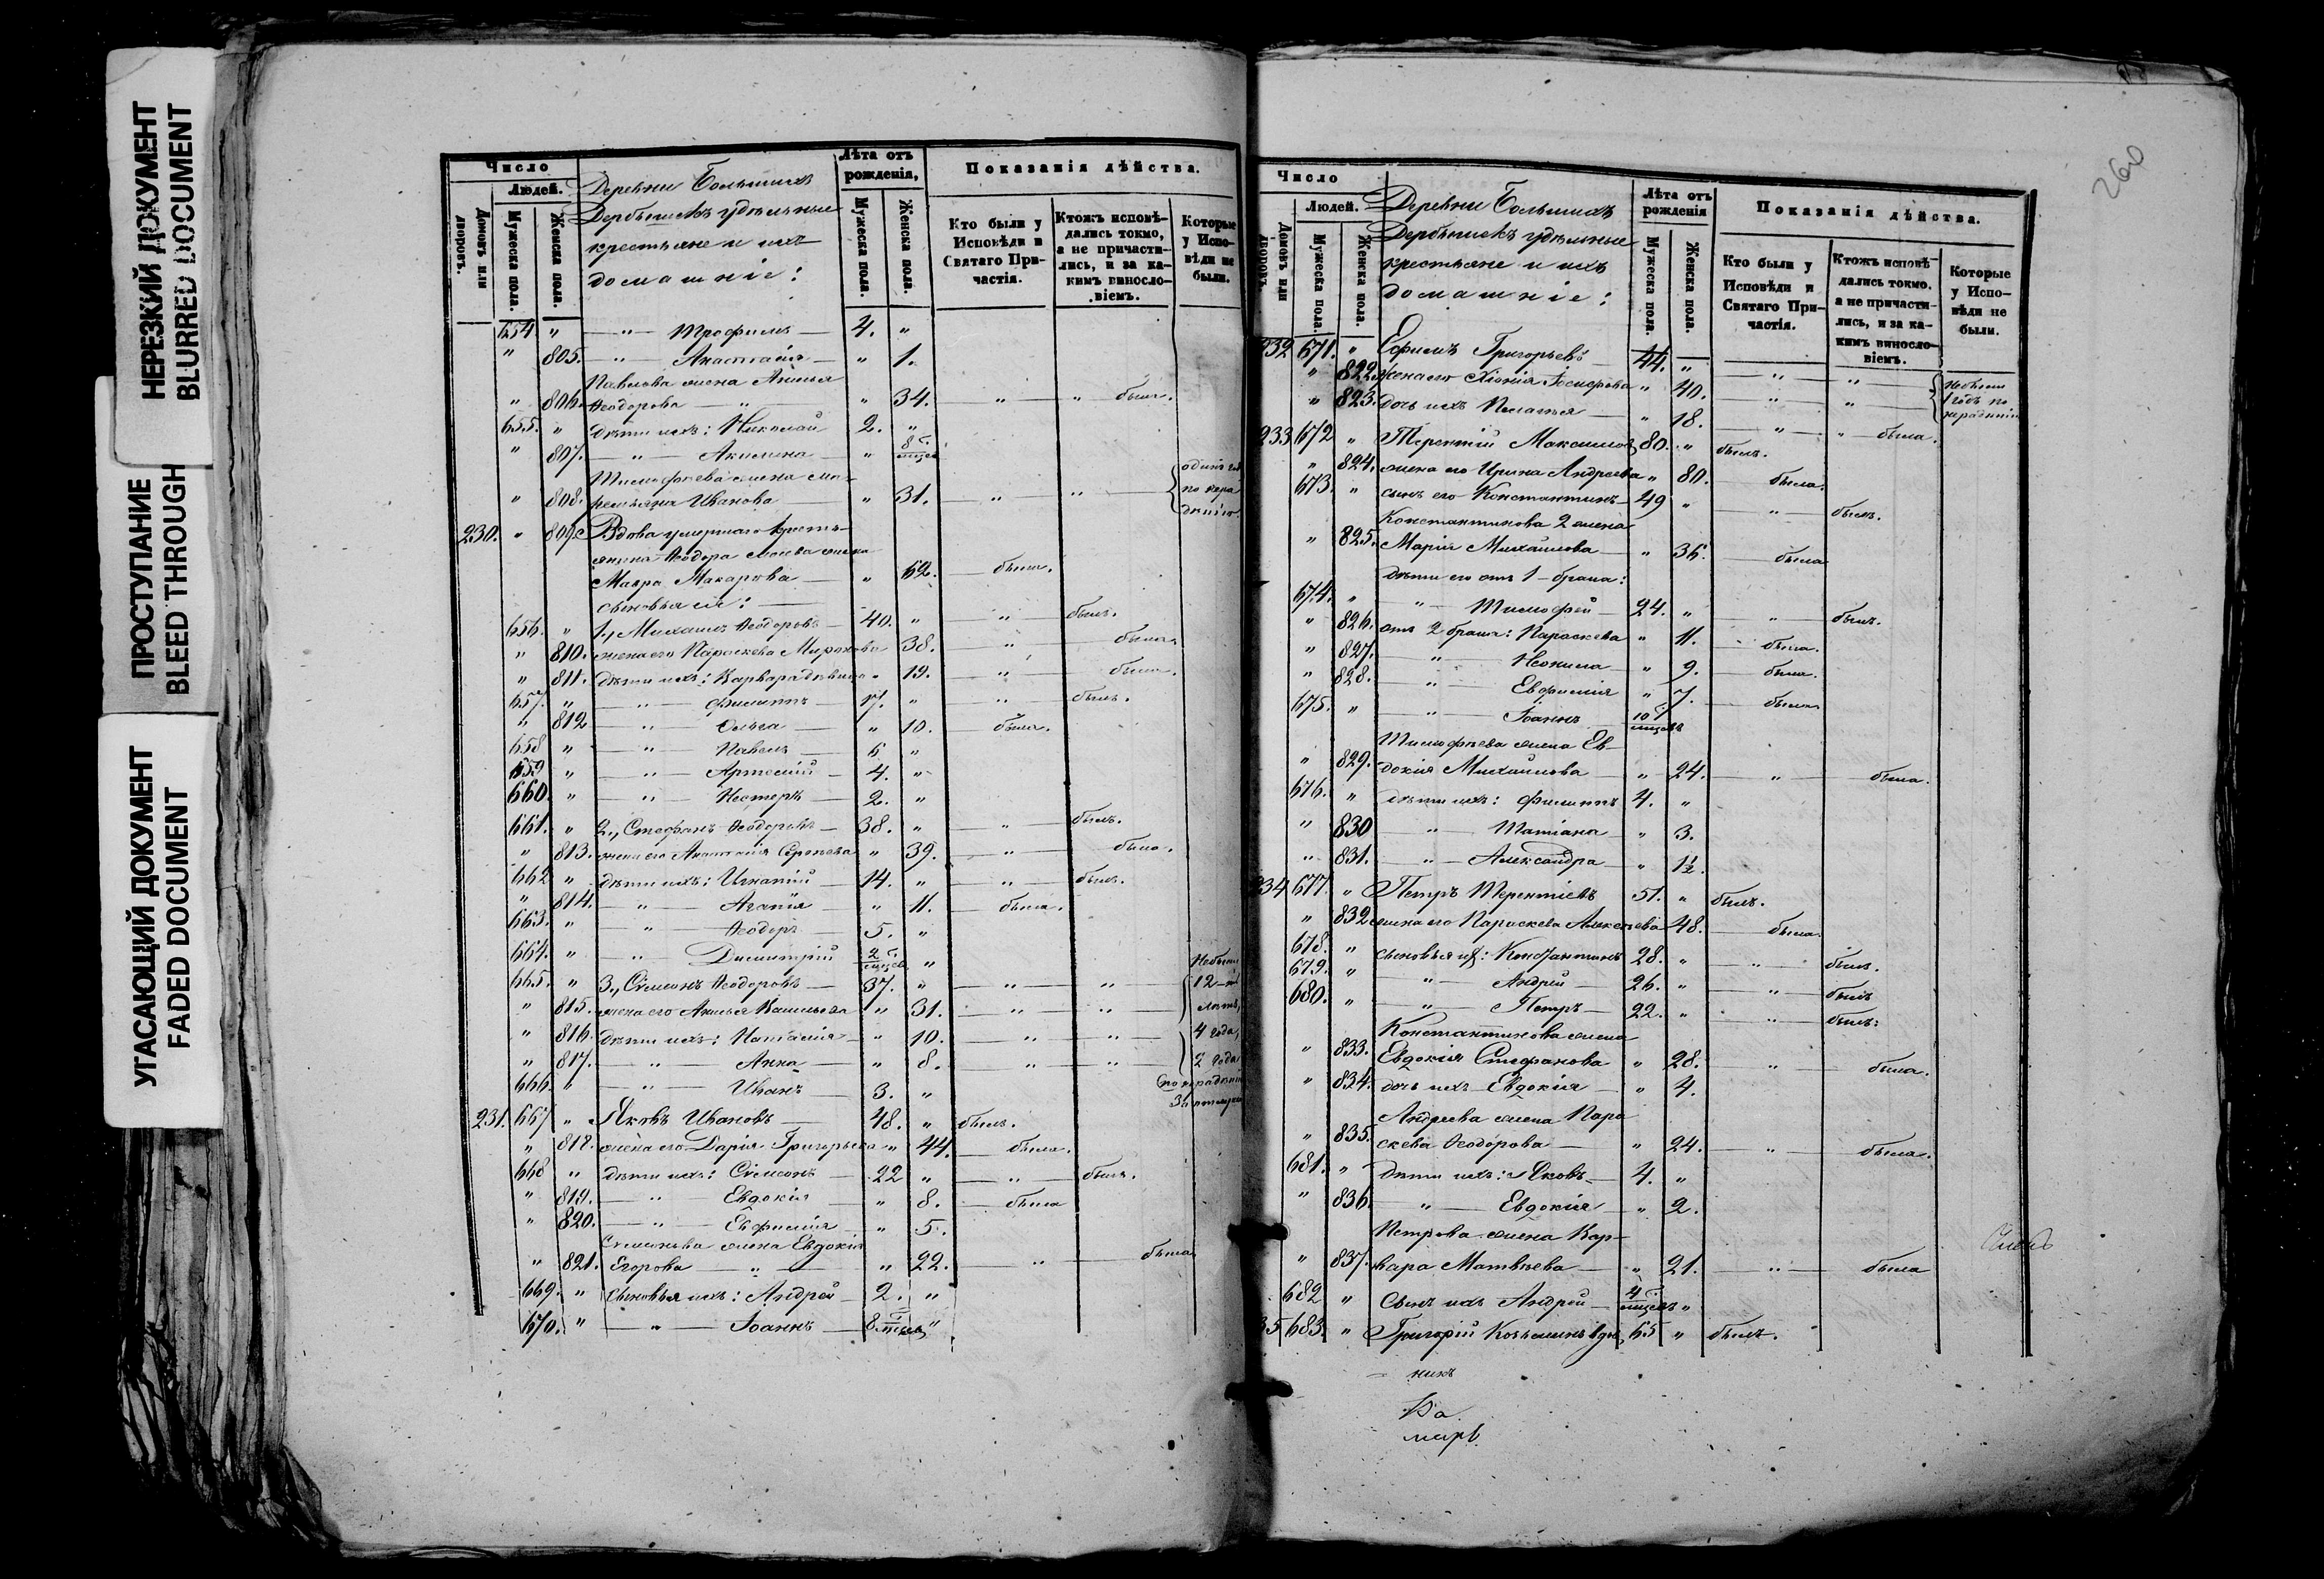 НЕРЕЗКИЙ ДОКУМЕНТ
BLURRED DOCUMENT
ПРОСТУПАНИЕ
BLEED THROUGH
УГАСАЮЩИЙ ДОКУМЕНТ
FADED DOCUMENT
Число
Людей.
Домовъ или дворовъ.
Мужеска пола.
Женска пола.
Деревни Большихъ
Дербышекъ удѣльные
крестьяне и ихъ
домашніе:
Лѣта отъ рожденія,
Мужеска пола.
Женска пола.
Показанія дѣйства.
Кто были у Исповѣди и Святаго Причастія.
Ктожъ исповѣдались токмо, а не причастились, и за какимъ винословіемъ.
Которые у Исповѣди не были.
654. " — " — Трофимъ — 4. "
" 805. — " — Анастасія — " 1.
Павлова жена Анисья
" 806. Ѳеодорова — " — " 34. " " была.
655. " дѣти ихъ: Николай 2. "
" 807. — " — Акилина — " 8 мцев
Тимофѣева жена
" 808. Иванова " 31. " " одинъ годъ по нерадѣнію.
230. " 809. Вдова умершаго кресть-
янина Ѳеодора жена
Мавра Макарова — " 62. — была.
сыновья ея: —
656. " 1., Михаилъ Ѳеодоровъ — 40. " " былъ.
" 810. жена его Параскева Миронова 38. " была.
" 811. дѣти ихъ: Варвара дѣвица " 19. " была.
657. " — " — Филиппъ — 17. " " былъ.
" 812 — " — Ольга — " 10. была.
658 " — " — Павелъ — 6 "
659 " — " — Артемій — 4. "
660. " — " — Нестеръ — 2. "
661. " 2., Стефанъ Ѳеодоровъ — 38. " " былъ.
" 813. жена его Анастасія Сергѣева " 39. " была.
662 " дѣти ихъ: Игнатій — 14. " " былъ.
" 814. — " — Агапія — " 11. была.
663. " — " — Ѳеодоръ — 5. "
664. " — " — Димитрій 2 мцев "
665. " 3., Сѵмеонъ Ѳеодоровъ — 37. " " " Небыли 12-ть
" 815. жена его Анисья Васильева " 31. " " лѣтъ,
" 816. дѣти ихъ: Наталия — " 10. " " 4 года,
" 817. — " — Анна — " 8. " " 2 года
666. " — " — Иванъ — 3. " по нерадѣнію
231. 667 " Яковъ Ивановъ — 48. " былъ.
" 818. жена его Дарія Григорьева " 44. была.
668 " дѣти ихъ: Сѵмеонъ — 22 " " былъ.
" 819. — " — Евдокія — " 8. была
" 820. — " — Евфимія — " 5.
Сѵмеонова жена Евдокія
" 821. Егорова — " — " 22. " была
669. " сыновья ихъ: Андрей 2. "
670. " — " — Іоаннъ — 8 мцев "
260
Число
Людей.
Домовъ или дворовъ.
Мужеска пола.
Женска пола.
Деревни Большихъ
Дербышекъ удѣльные
крестьяне и ихъ
домашніе:
Лѣта отъ рожденія
Мужеска пола.
Женска пола.
Показанія дѣйства.
Кто были у Исповѣди и Святаго Причастія.
Ктожъ исповѣдались токмо, а не причастились, и за какимъ винословіемъ.
Которые у Исповѣди не были.
232 671. " Ефимъ Григорьевъ 44. " " " Небыли
" 822. жена его Хіонія Іосифова " 40. " " 1 годъ по нерадѣнію
" 823. дочь ихъ Пелагея — " 18. " " была.
233 672 " Терентій Максимовъ 80. " былъ.
" 824. жена его Ирина Андреева " 80. была.
673. " сынъ его Константинъ 49 " " былъ.
Константинова 2 жена
" 825. Марія Михайлова — " 36. была
дѣти его отъ 1-брака:
674. " — " — Тимофей 24. " " былъ.
" 826. отъ 2 брака: Параскева " 11. была.
" 827. — " — Неонила — " 9. была.
" 828. — " — Евфимія " 7. была
675. " — " — Іоаннъ — 10 мцевъ
Тимофѣева жена Ев-
" 829. докія Михайлова — " 24. " была.
676. " дѣти ихъ: Филиппъ 4. "
" 830 — " — Татіана — " 3.
" 831. — " — Александра — " 1½.
234 677. " Петръ Терентіевъ 51. " былъ.
" 832 жена его Параскева Алексѣева 48. была.
678. " сыновья их: Константинъ 28. " " былъ.
679. " — " — Андрей — 26. " " былъ
680. " — " — Петръ — 22. " " былъ:
Константинова жена
" 833. Евдокія Стефанова " 28. " была.
" 834. дочь ихъ Евдокія — " 4.
Андреева жена Пара
" 835. скева Ѳеодорова — " 24. " была.
681. " дѣти ихъ: Яковъ — 4. "
" 836 — " — Евдокія — " 2.
Петрова жена Вар-
" 837. вара Матвѣева — " 21. " была
682 " сынъ ихъ Андрей — 4 мцевъ "
35 683. " Григорій Козьминъ 65 " былъ.